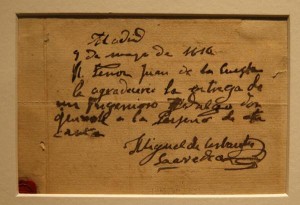 Madrid
9 de mayo de 1616
Sr. Señor Juan de la Cuesta
le agradeceré la entrega de
un Ingenioso Hidalgo don
quixote a la de esta
carta
Miguel de Cerbantes
Saavedra